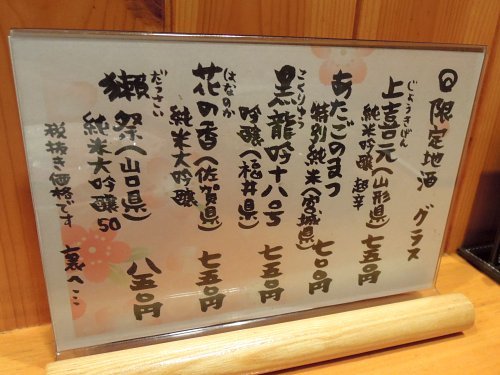 ◎限定地酒 グラス
じょうきげん
上喜元(山形県)七五〇円
純米吟醸 超辛
あたごのまつ
特別純米(宮城県)七〇〇円
こくりゅう
黒龍吟十八号
吟醸(福井県)七五〇円
はなのか
花の香(佐賀県)七五〇円
純米大吟醸
だっさい
獺祭(山口県)八五〇円
純米大吟醸50
税抜き価格です 裏へ